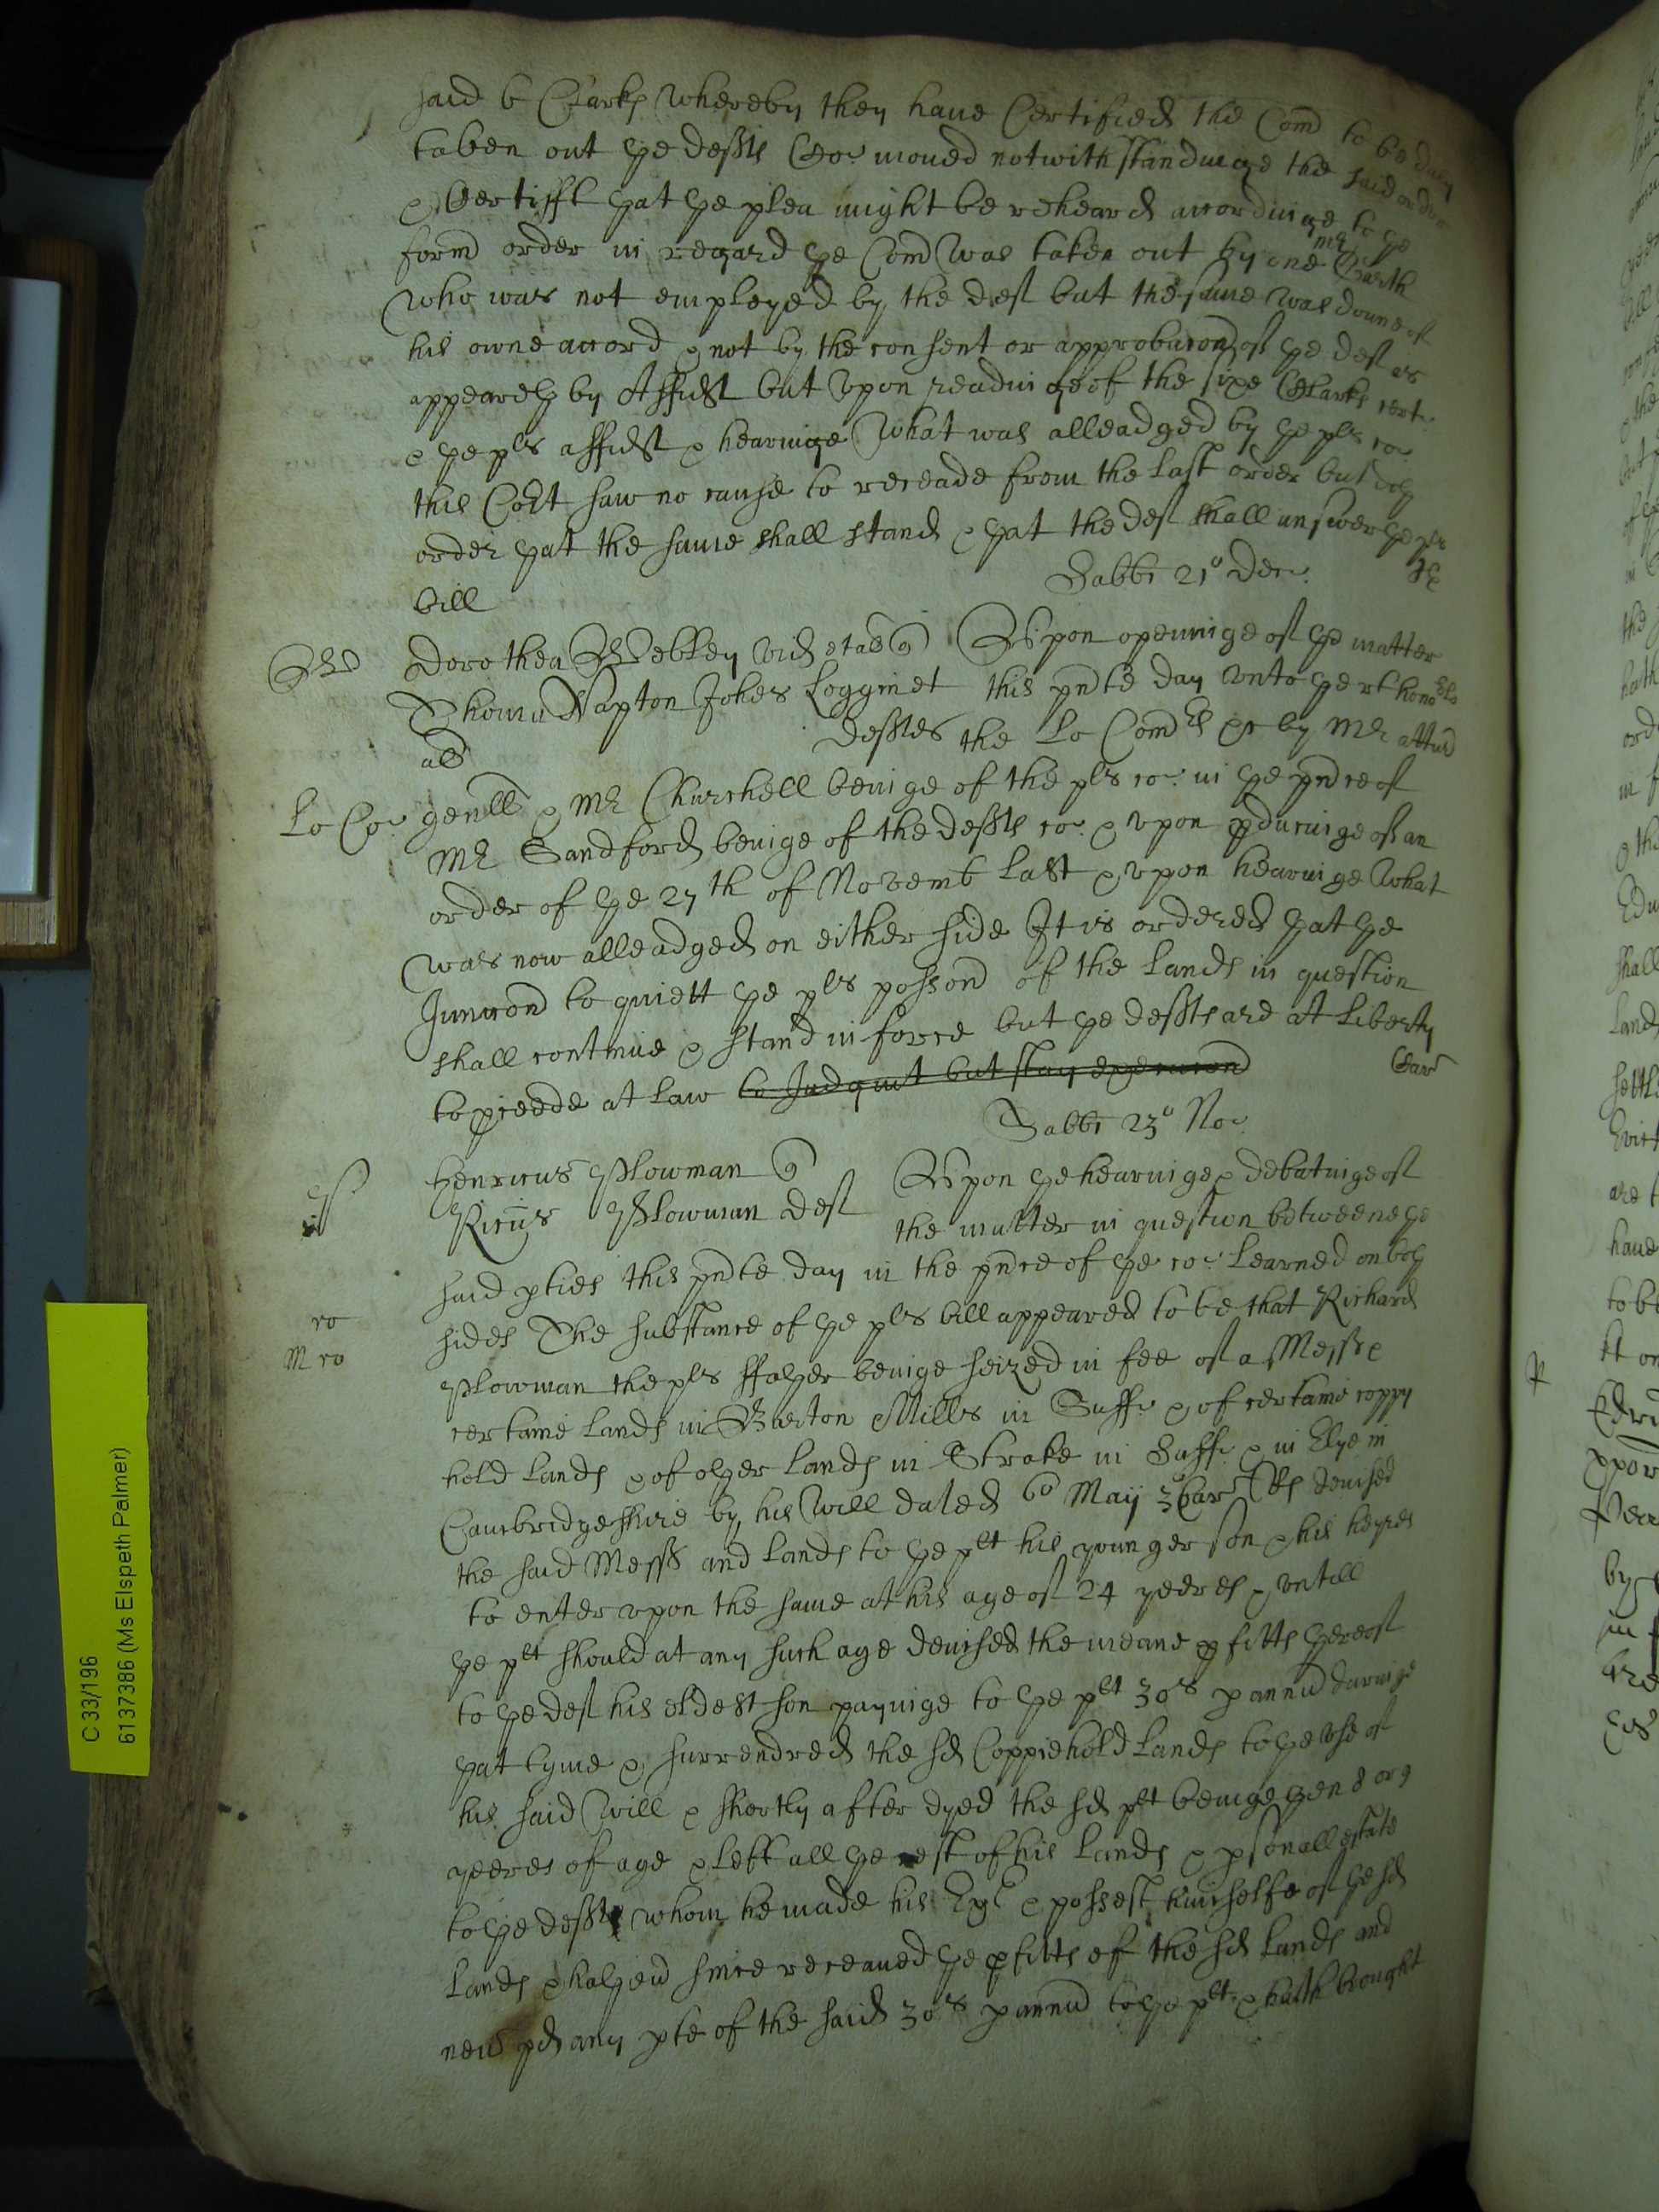 said 6 Clarks whereby they haue Certified the Com to be duly
taken out the defts Co: moued notwithstandinge the said order
& Certifft that the plea might be reheard accordinge to the
form order in regard the Com was taken out by one mr Garth
who was not employed by the def but the same was doune of
his owne accord & not by the consent or approbacon of the def as
appeareth by Affidt but vpon readinge of the sixe Clarks cert.
& the pls affidt & hearinge what was alleadged by the pls co:
this Cort saw no cause to receade from the last order but doth
order that the same shall stand & that the def shall answer the pls
bill
Sabbi 21o Dec.
Dorothea Webley vid et al q
Thomas Napton Johes Loggin et
al deftes
Vpon openinge of the matter
this pnte day vnto the rt honoble
the Lo Comrs &c by Mr atturn
Lo Co: genll & Mr Churchell beinge of the pls co: in the pnce of
Mr Sandford beinge of the defts co: & vpon pducinge of an
order of the 27th of Novemb last & vpon hearinge what
was now alleadged on either side It is ordered that the
Juncon to quiett the pls posson of the Lands in question
shall continue & stand in force but the defts are at Liberty
to pceede at Law to Judgmt but stay execucon
Sabbi 23o No:
Henricus Plowman q
Ricus Plowman def
Vpon the hearinge & debatinge of
the matter in question betweene the
said pties this pnte day in the pnce of the co: Learned on both
sides The substance of the pls bill appeared to be that Richard
Plowman the pls ffather beinge seized in fee of a Messe &
certaine lands in Barton Mills in Suff. & of certaine coppy
hold Lands & of other Lands in Stroke in Suff. & in Elye in
Cambridgeshire by his Will dated 6o Maij 3o Car Rs devised
the said Mess and Lands to the plt his younger son & his heyres
to enter vpon the same at his age of 24 yeeres & vntill
the plt should at any such age devised the meane pfitts thereof
to the def his eldest son payinge to the plt 30s p annu duringe
that tyme & surrendred the sd Coppiehold Lands to the vse of
his said Will & shortly after dyed the sd plt beinge then 8 or 9
yeeres of age & Left all the rest of his Lands & psonall estate
to the deft whom he made his Exr & possest himselfe of the sd
Lands & hath ever since receaued the pfitts of the sd Lands and
never pd any pte of the said 30s p annu to the plt & hath brought
ro
M ro
C 33/196
6137386 (Ms Elspeth Palmer)